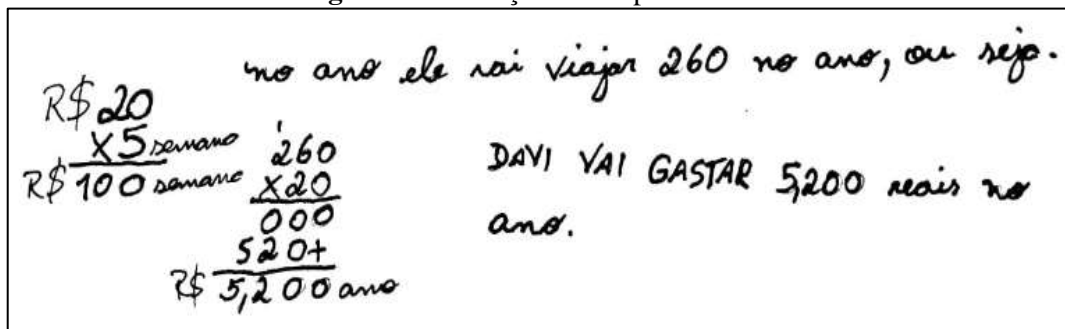 no ano ele vai viajar 260 no ano, ou seja.
R$ 20
X5 semana
R$ 100 semana
260
X20
000
520+
R$ 5,200 ano
DAVI VAI GASTAR 5,200 reais no
ano.